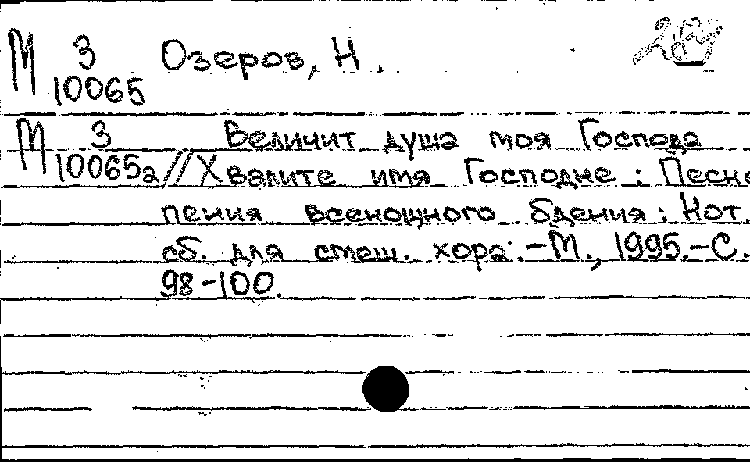 М 3 Озеров, Н.
10065
М 3 Величит душа моя Господа
10065а // Хвалите имя Господне: Песно
пения всенощного бдения: Нот.
сб. для смеш. хора. - М., 1995. - С.
98-100.